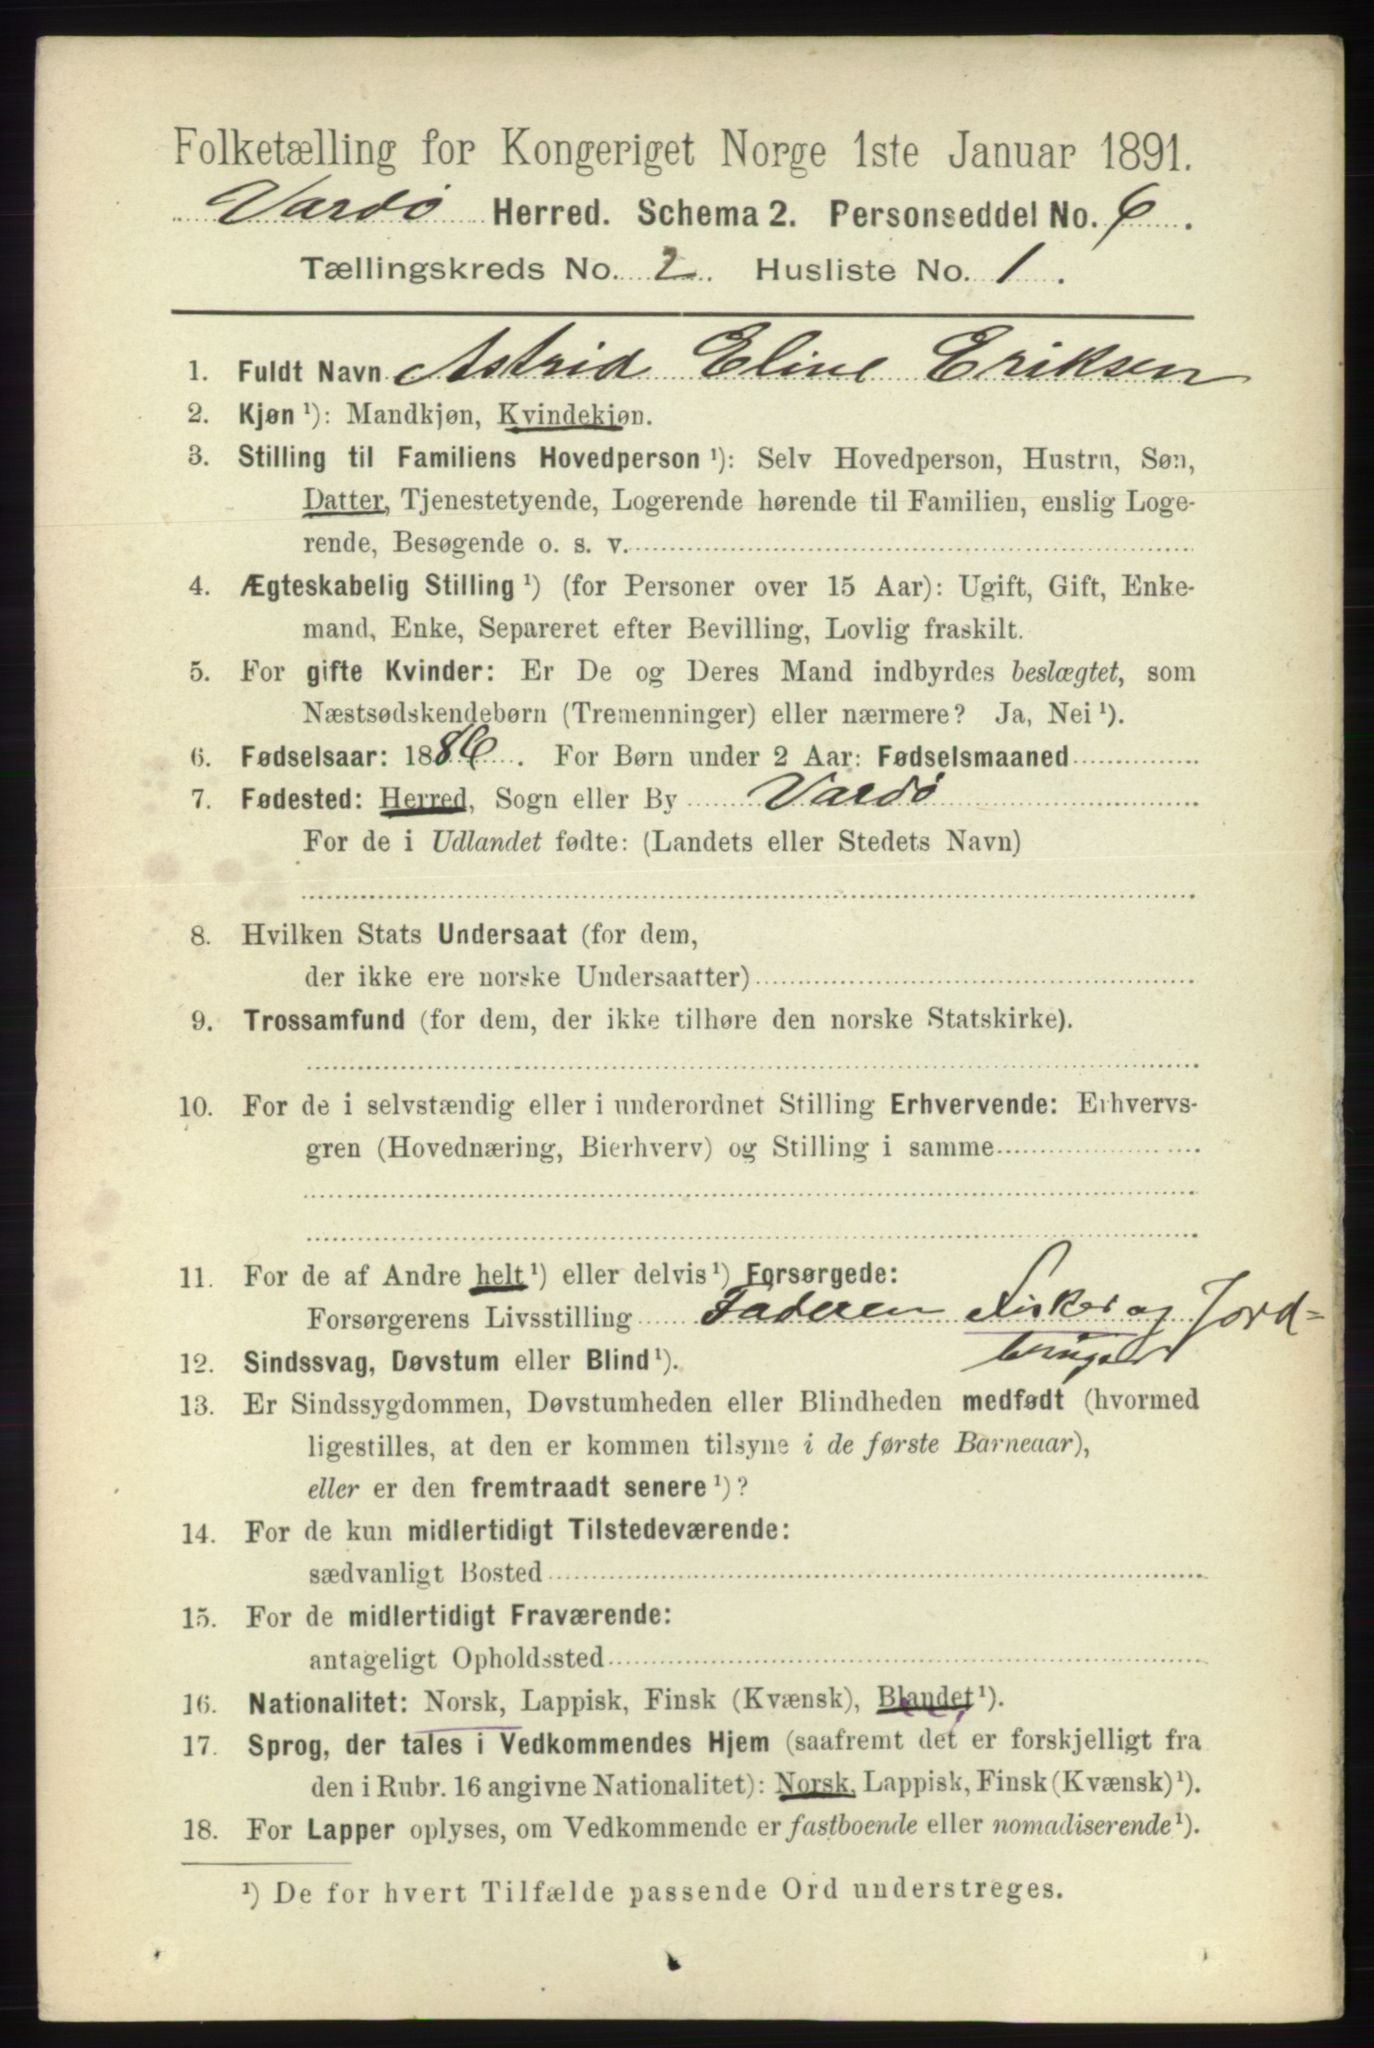 Folketælling for Kongeriget Norge 1ste Januar 1891.
Vardø Herred. Schema 2. Personseddel No. 6.
Tællingskreds No. 2. Husliste No. 1.
1. Fuldt Navn Astrid Eline Eriksen
2. Kjøn ¹): Mandkjøn, Kvindekjøn.
3. Stilling til Familiens Hovedperson ¹): Selv Hovedperson, Hustru, Søn,
Datter, Tjenestetyende, Logerende hørende til Familien, enslig Loge-
rende, Besøgende o. s. v.
4. Ægteskabelig Stilling ¹) (for Personer over 15 Aar): Ugift, Gift, Enke-
mand, Enke, Separeret efter Bevilling, Lovlig fraskilt.
5. For gifte Kvinder: Er De og Deres Mand indbyrdes beslægtet, som
Næstsødskendebørn (Tremenninger) eller nærmere? Ja, Nei ¹).
6. Fødselsaar: 1886. For Børn under 2 Aar: Fødselsmaaned
7. Fødested: Herred, Sogn eller By Vardø
For de i Udlandet fødte: (Landets eller Stedets Navn)
8. Hvilken Stats Undersaat (for dem,
der ikke ere norske Undersaatter)
9. Trossamfund (for dem, der ikke tilhøre den norske Statskirke).
10. For de i selvstændig eller i underordnet Stilling Erhvervende: Erhvervs-
gren (Hovednæring, Bierhverv) og Stilling i samme
11. For de af Andre helt ¹) eller delvis ¹) Forsørgede:
Forsørgerens Livsstilling Faderen Fisker og Jord-
bruger
12. Sindssvag, Døvstum eller Blind ¹).
13. Er Sindssygdommen, Døvstumheden eller Blindheden medfødt (hvormed
ligestilles, at den er kommen tilsyne i de første Barneaar),
eller er den fremtraadt senere ¹)?
14. For de kun midlertidigt Tilstedeværende:
sædvanligt Bosted
15. For de midlertidigt Fraværende:
antageligt Opholdssted
16. Nationalitet: Norsk, Lappisk, Finsk (Kvænsk), Blandet ¹).
17. Sprog, der tales i Vedkommendes Hjem (saafremt det er forskjelligt fra
den i Rubr. 16 angivne Nationalitet): Norsk, Lappisk, Finsk (Kvænsk) ¹).
18. For Lapper oplyses, om Vedkommende er fastboende eller nomadiserende ¹).
¹) De for hvert Tilfælde passende Ord understreges.